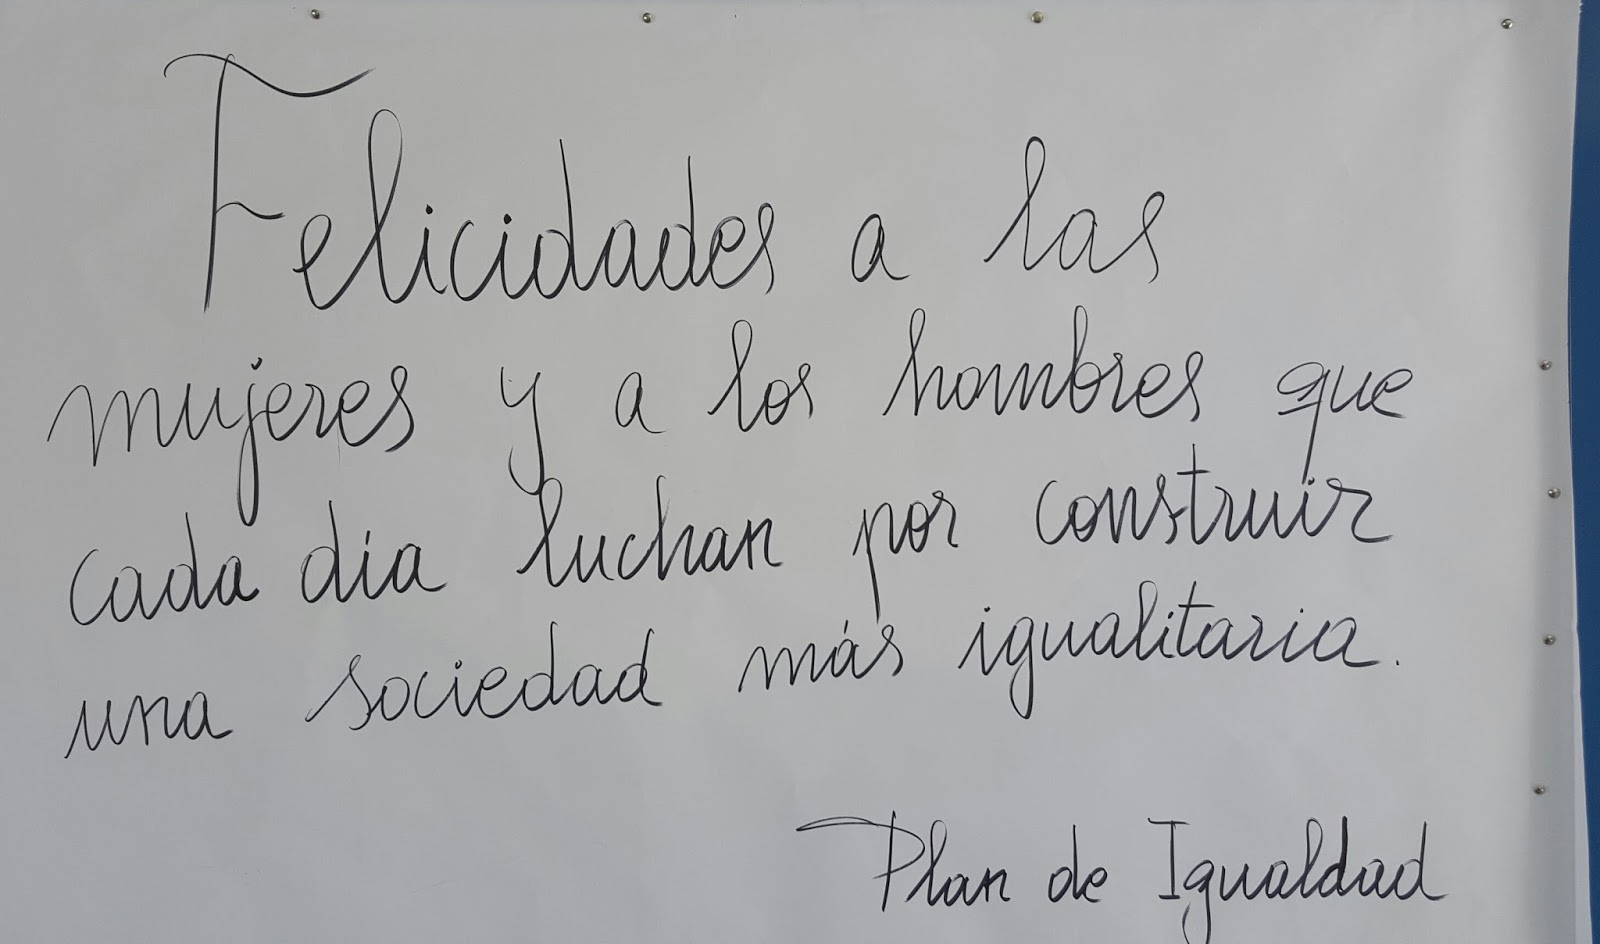 Felicidades a las
mujeres y a los hombres que
cada dia luchan por construir
una sociedad más igualitaria.
Plan de Igualdad